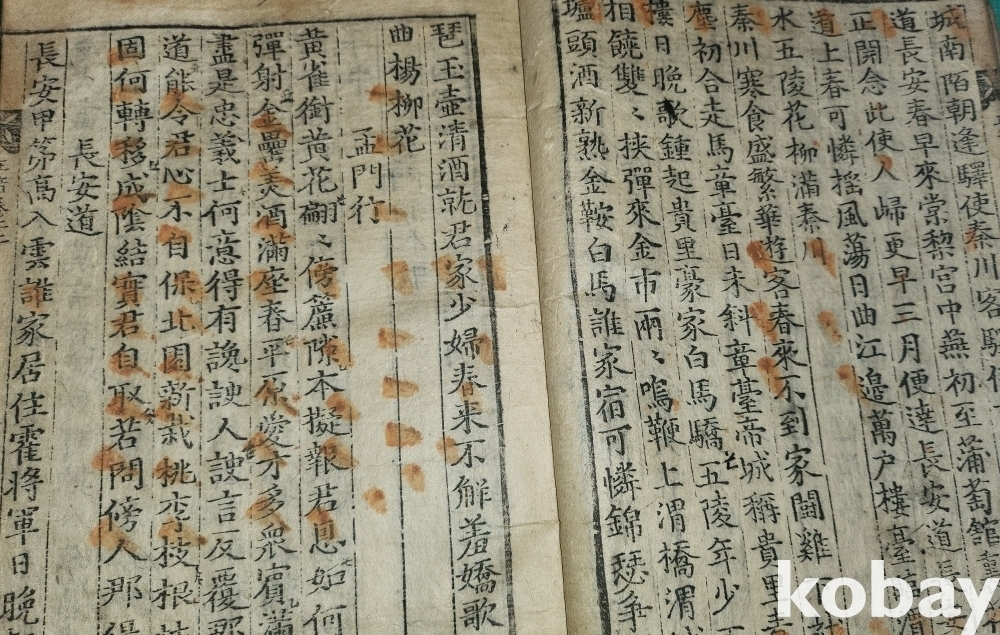 城南陌朝逢驛使秦川客驛使
道長安春早來棠黎宮中燕初至蒲萄館
正開念此使人歸更早三月便達長安道長安
道上春可憐搖風蕩日曲江邊萬户樓臺臨渭
水五陵花柳滿秦川
秦川寒食盛繁華遊客春來不到家鬪雞下
塵初合走馬章臺日未斜章臺帝城稱貴里
樓日晚歌鍾起貴里豪家白馬驕五陵年少不
相饒雙〻挾彈來金市兩〻鳴鞭上渭橋渭城
壚頭酒新熟金鞍白馬誰家宿可憐錦瑟爭
琵玉壺清酒就君家少婦春來不解羞嬌歌
曲楊柳花
孟門行
黃雀銜黃花翩〻傍簷隙本擬報君恩如何
彈射金罍美酒滿座春平原愛才多衆賓滿
盡是忠義士何意得有讒諛人諛言反覆那
道能令君心不自保北園新栽桃李枝根
固何轉移成陰結實君自取若問傍人那得
長安道
長安甲第高入雲誰家居住霍將軍日晚
kobay